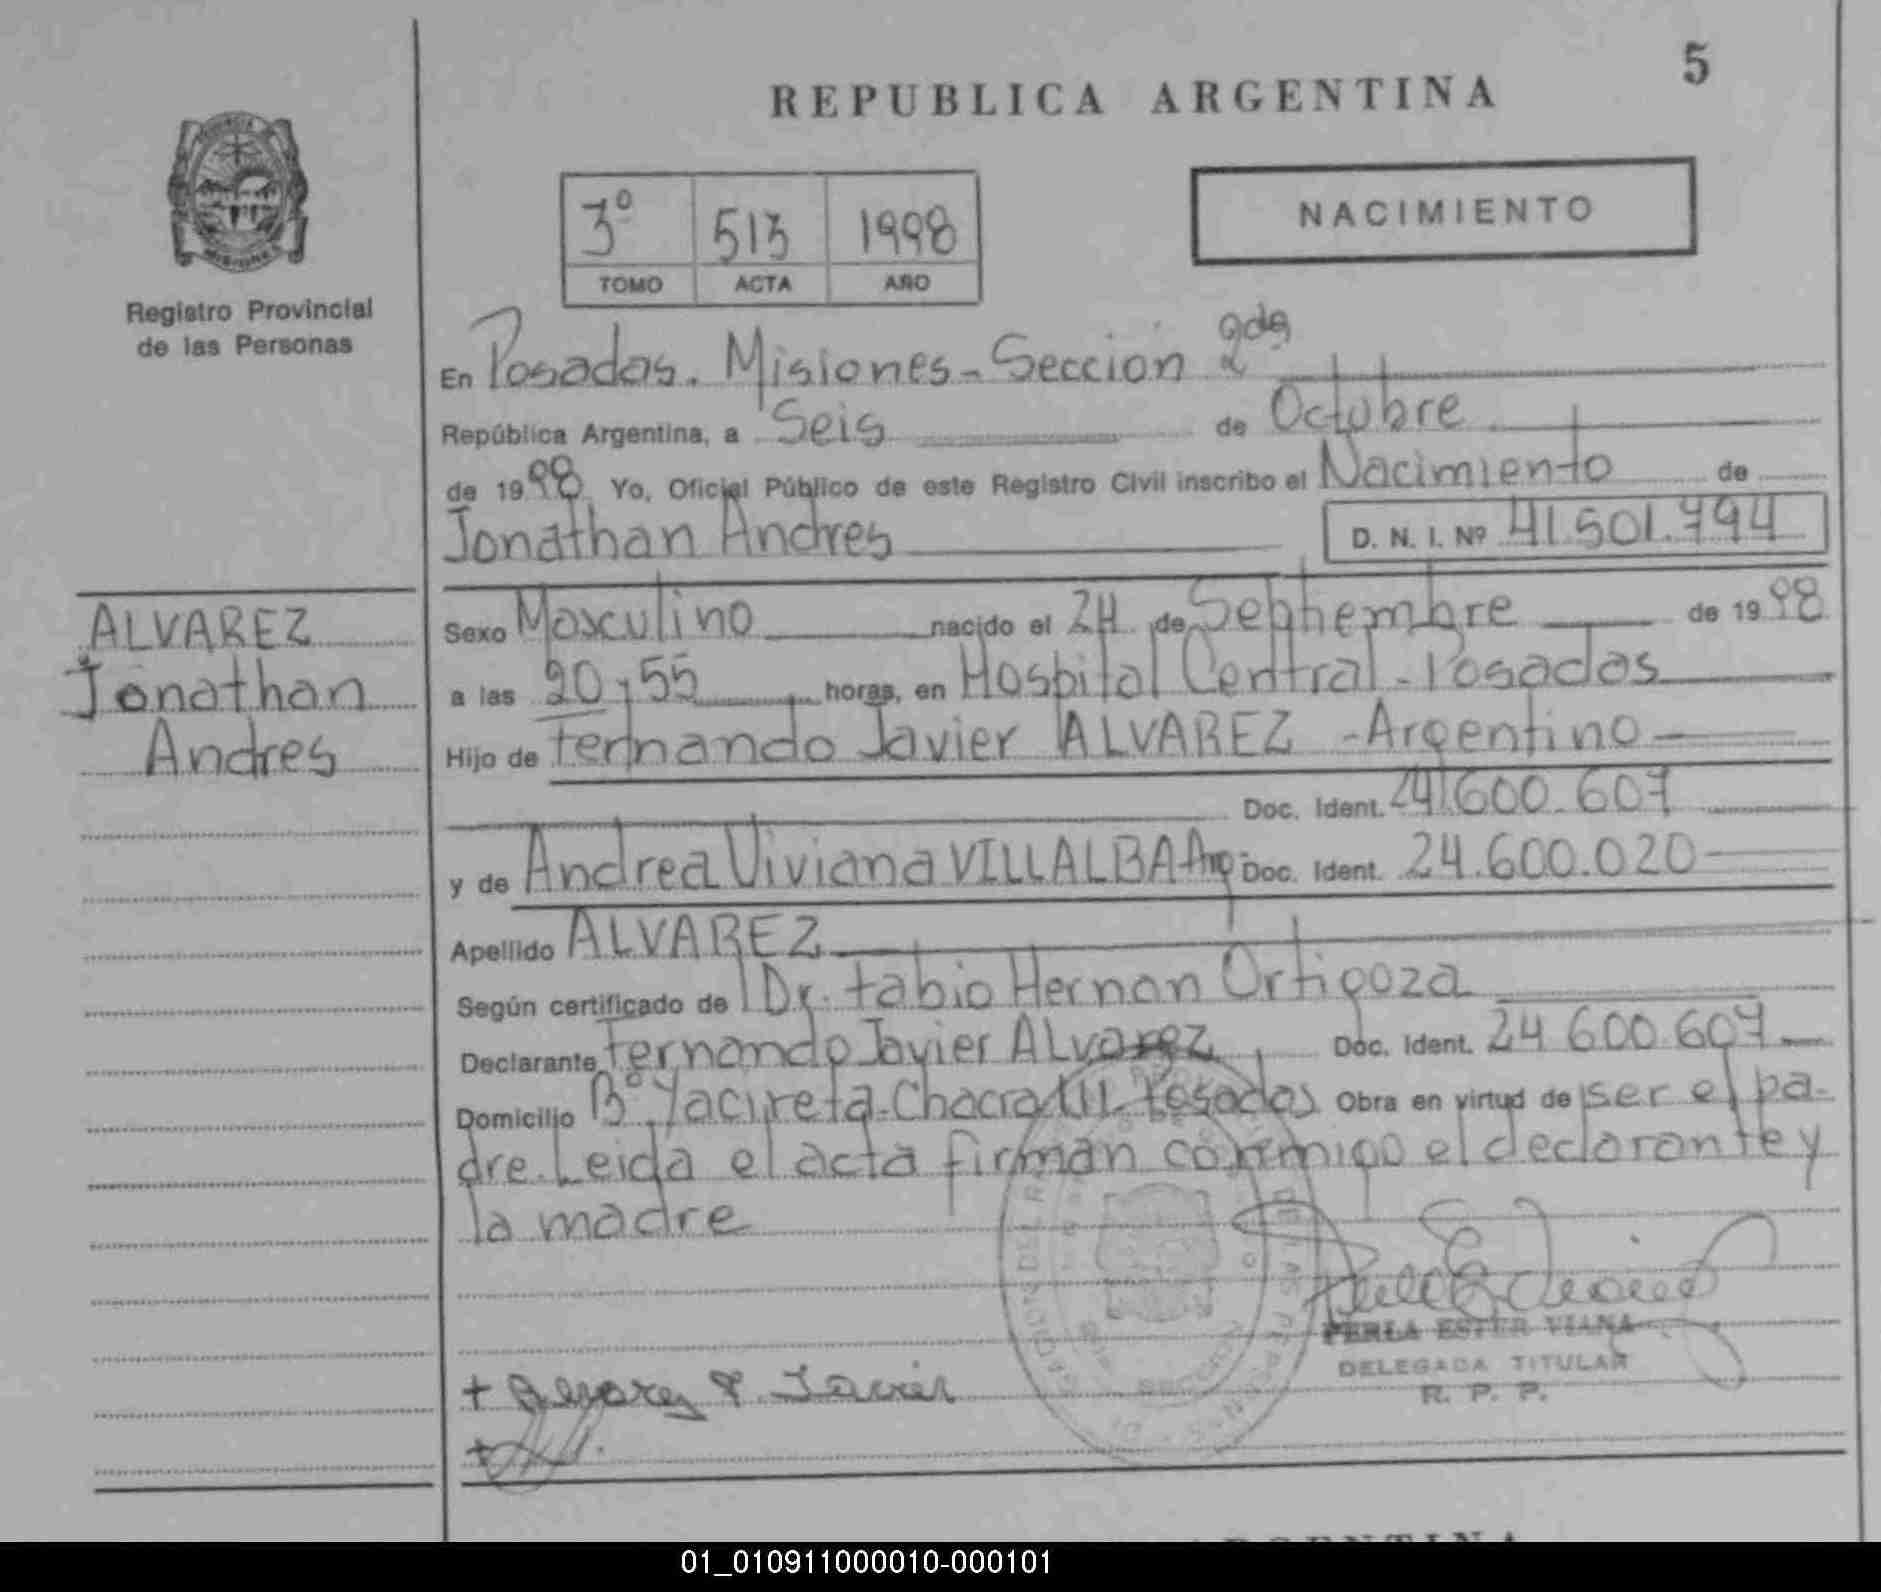 5
REPUBLICA ARGENTINA
NACIMIENTO
3º 513 1998
TOMO ACTA AÑO
Registro Provincial
de las Personas
En Posadas. Misiones - Sección 2da
República Argentina, a Seis de Octubre
de 1998 Yo, Oficial Público de este Registro Civil inscribo el Nacimiento de
Jonathan Andres D. N. I. Nº 41.501.794
ALVAREZ
Jonathan
Andres
Sexo Masculino nacido el 24 de Septiembre de 1998
a las 20,55 horas, en Hospital Central - Posadas
Hijo de Fernando Javier ALVAREZ - Argentino
Doc. Ident. 24.600.607
y de Andrea Viviana VILLALBA - Arg. Doc. Ident. 24.600.020
Apellido ALVAREZ
Según certificado de Dr. Fabio Hernan Ortigoza
Declarante Fernando Javier ALvarez Doc. Ident. 24 600.607
Domicilio Bº Yacireta - Chacra Posadas Obra en virtud de ser el pa-
dre. Leida el acta firman conmigo el declarante y
la madre
PERLA ESTER VIANA
DELEGADA TITULAR
R. P. P.
+ Alvarez F. Javier
01_010911000010-000101